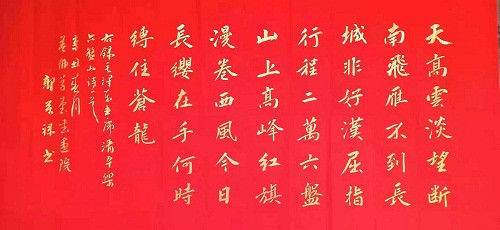 天高雲淡望断
南飛雁不到長
城非好漢屈指
行程二萬六盤
山上高峰紅旗
漫卷西風今日
長纓在手何時
縛住蒼龍
右錄毛澤東主席清平樂
六盤山
辛丑月
書畫院
書